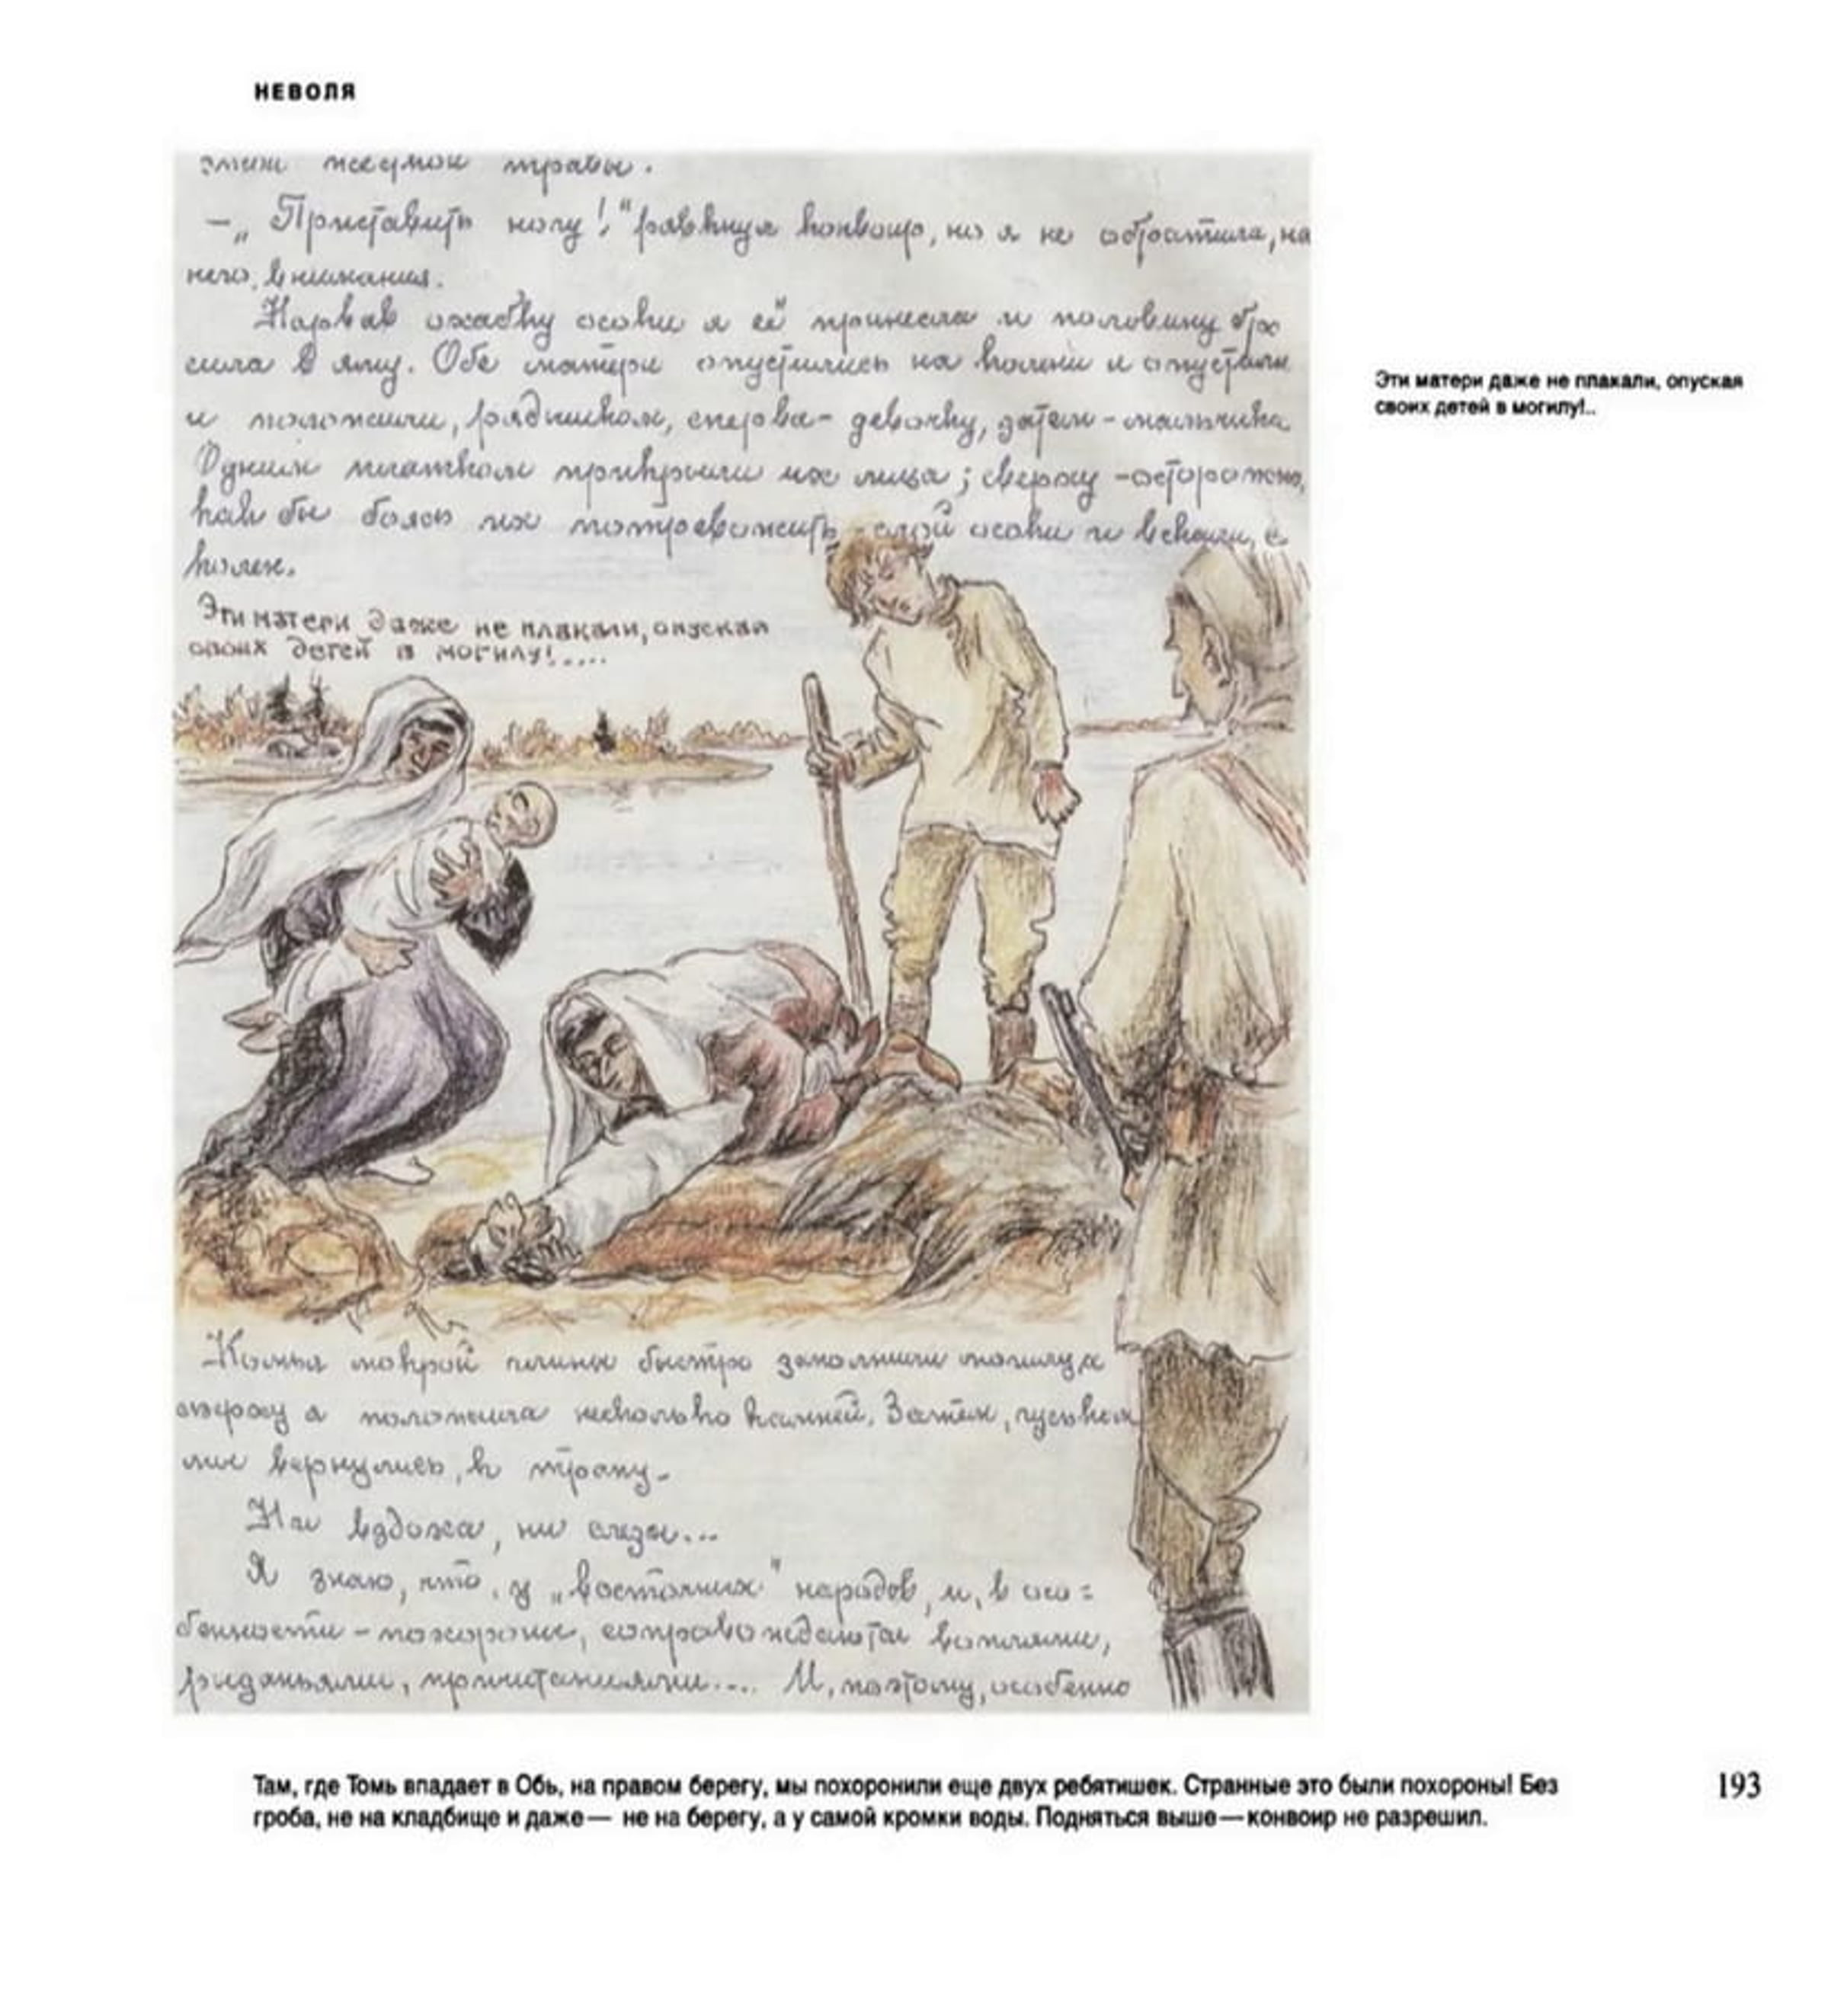 НЕВОЛЯ
травы.
— „Приставить ногу!“ рявкнул конвоир, но я не обратила, на
него, внимания.
Нарвав охапку осоки я её принесла и половину бро
сила в яму. Обе матери опустились на колени и опустили
и положили, рядышком, сперва - девочку, затем - мальчика.
Одним платком прикрыли их лица; сверху - осторожно,
как бы боясь их потревожить - слой осоки и
колен.
Эти матери даже не плакали, опуская
своих детей в могилу!.....
Эти матери даже не плакали, опуская
своих детей в могилу!..
Комья мокрой глины быстро заполнили могилу,
сверху я положила несколько камней. Затем, гуськом
мы вернулись, к трапу.
Ни вздоха, ни слезы...
Я знаю, что, у „восточных“ народов, и, в осо=
бенности - похороны, сопровождаются воплями,
рыданьями, причитаниями.... И, поэтому, особенно
Там, где Томь впадает в Обь, на правом берегу, мы похоронили еще двух ребятишек. Странные это были похороны! Без
гроба, не на кладбище и даже— не на берегу, а у самой кромки воды. Подняться выше—конвоир не разрешил.
193